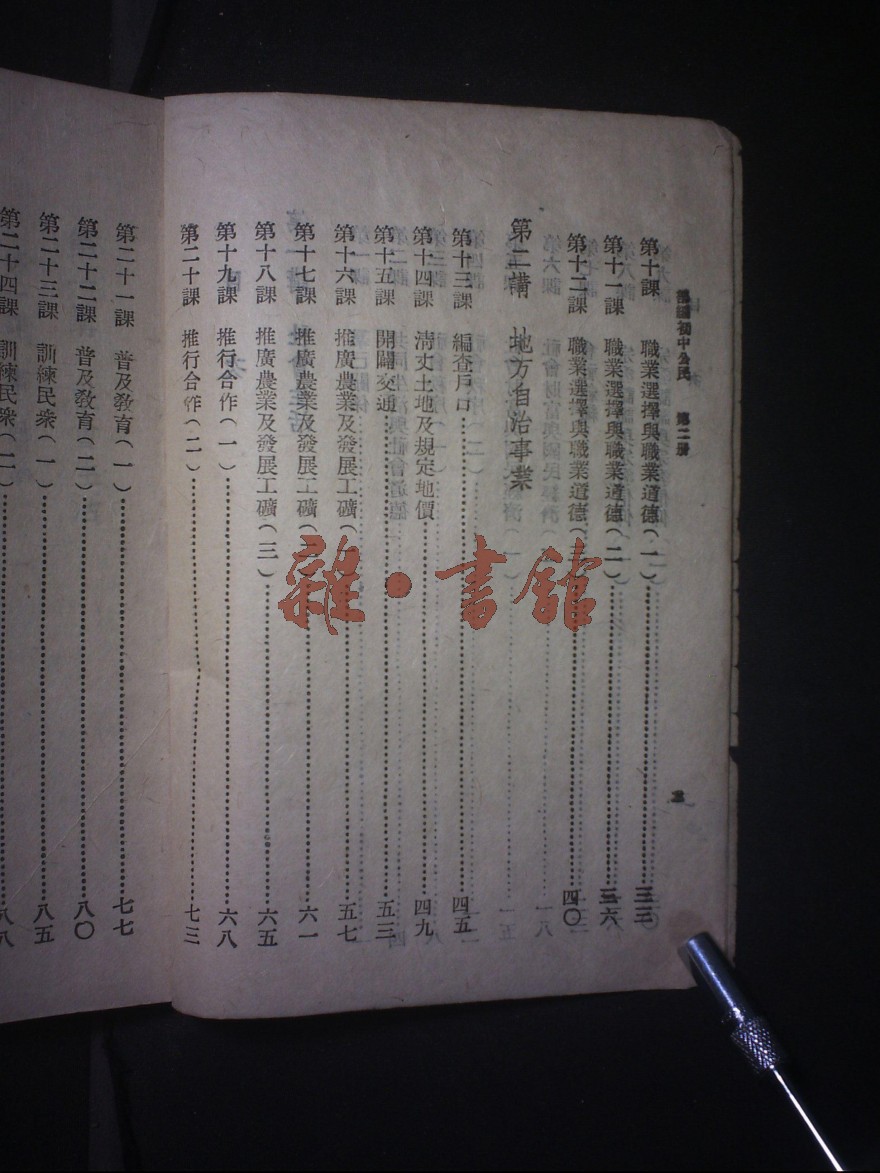 初中公民 第二册
第十課 職業選擇與職業道德(一)……三三
第十一課 職業選擇與職業道德(二)……三六
第十二課 職業選擇與職業道德(三)……四〇
第二講 地方自治事業
第十三課 編查戶口……四五
第十四課 淸丈土地及規定地價……四九
第十五課 開闢交通……五三
第十六課 推廣農業及發展工礦(一)……五七
第十七課 推廣農業及發展工礦(二)……六一
第十八課 推廣農業及發展工礦(三)……六五
第十九課 推行合作(一)……六八
第二十課 推行合作(二)……七三
第二十一課 普及敎育(一)……七七
第二十二課 普及敎育(二)……八〇
第二十三課 訓練民衆(一)……八五
第二十四課 訓練民衆(二)……八八
雜·書館